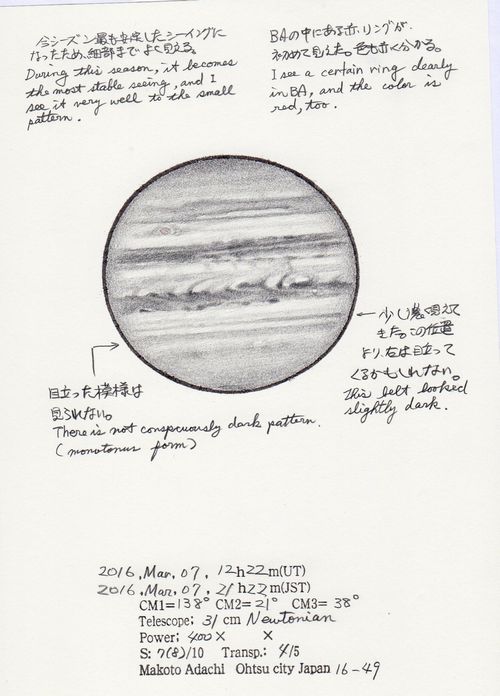 今シーズン最も安定したシーイングに
なったため、細部までよく見える。
During this season, it becomes
the most stable seeing, and I
see it very well to the small
pattern.
BAの中にある赤いリングが、
初めて見えた。色も赤く分かる。
I see a certain ring clearly
in BA, and the color is
red, too.
← 少し濃く見えて
きた。この位置
より、右は目立って
くるかもしれない。
This belt looked
slightly dark.
目立った模様は
見られない。
There is not conspcuously dark pattern.
(monotonus form)
2016, Mar, 07, 12h22m(UT)
2016, Mar, 07, 21h22m(JST)
CM1=138° CM2=21° CM3=38°
Telescope; 31 cm Newtonian
Power; 400× ×
S: 7(8)/10 Transp.: 4/5
Makoto Adachi Ohtsu city Japan 16-49